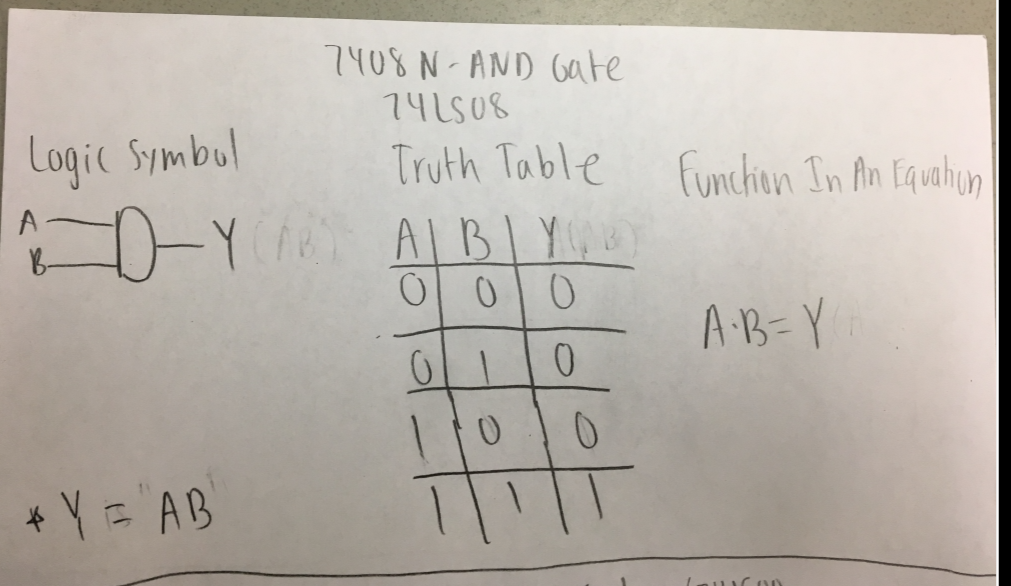 7408 N-AND Gate
74LS08
Logic Symbol
A
B
Y (AB)
Truth Table
A B Y(AB)
0 0 0
0 1 0
1 0 0
1 1 1
Function In An Equation
A·B=Y
* Y = "AB"